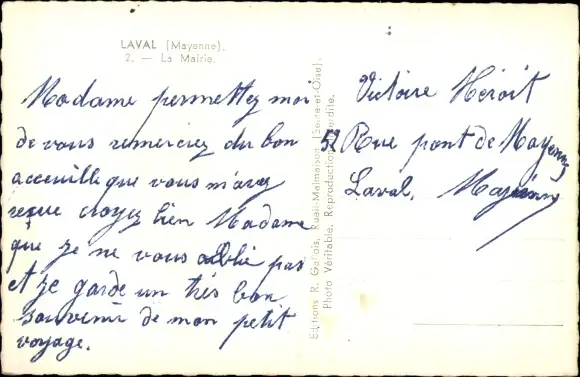 LAVAL (Mayenne).
2. — La Mairie.
Madame permettez moi
de vous remerciez du bon
acceuille que vous m'avez
reçue croyez bien Madame
que je ne vous oublie pas
et je garde un très bon
souvenir de mon petit
voyage.
Editions R. Gallois, Rueil-Malmaison (Seine-et-Oise).
Photo Véritable. Reproduction interdite.
Victoire Heroit
52 Rue pont de Mayenne
Laval. Mayenne